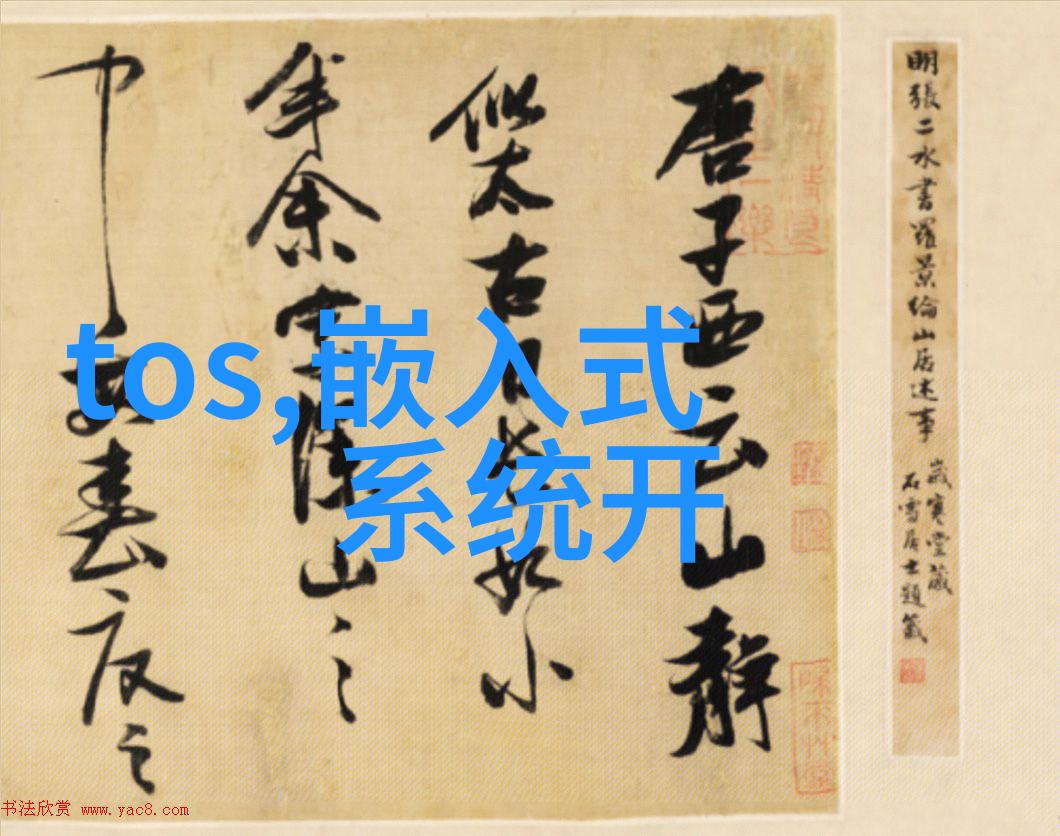 明張二水書羅景綸山居述事
歲寒堂藏
石雪居士題籤
唐子西云山靜
似太古日長如小
年余家深山之
中每春夏之
tos,嵌入式
系统开
书法欣赏 www.yac8.com